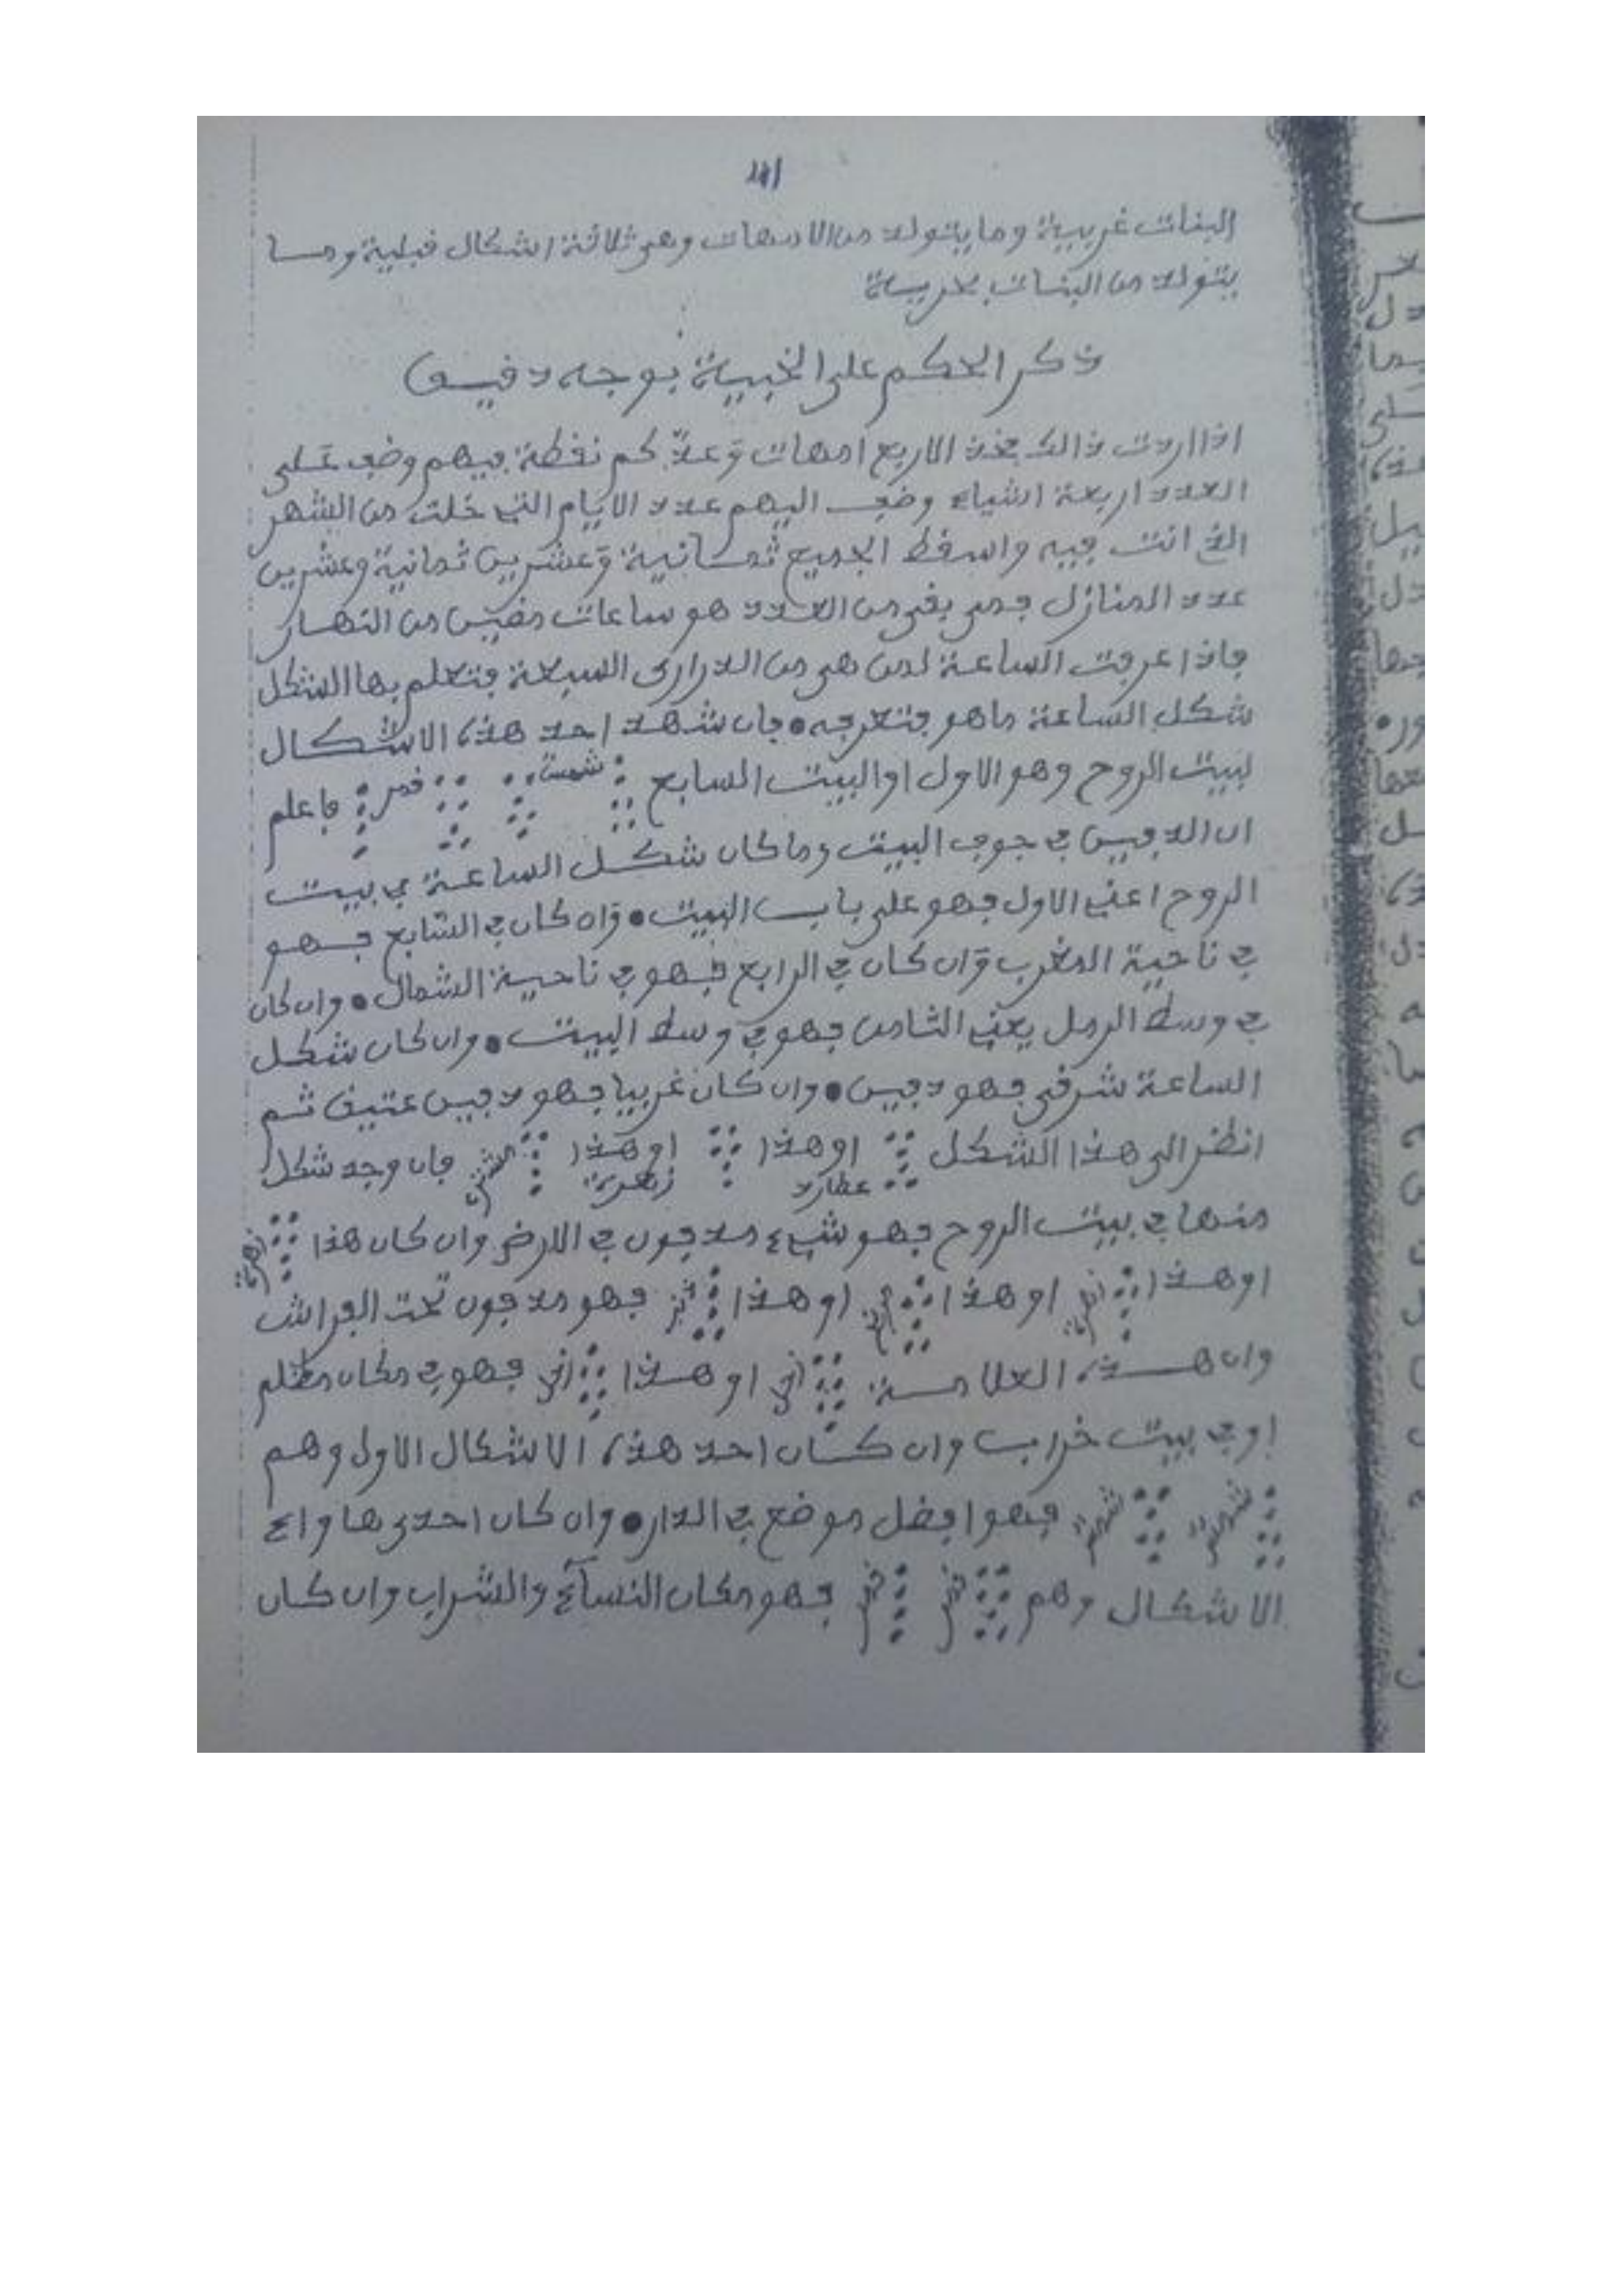 البنات غربية وما يتولد من الامهات وهي ثلاثة اشكال قبلية وما
يتولد من البنات بحرية
ذكر الحكم على الخبية بوجه دقيق
اذا اردت ذالك فخذ الاربع امهات وعدّ كم نقطة فيهم وضف على
العدد اربعة اشياء وضف اليهم عدد الايام التي خلت من الشهر
الذي انت فيه واسقط الجميع ثمانية وعشرين ثمانية وعشرين
عدد المنازل فمى بقى من العدد هو ساعات مضين من النهار
فاذا عرفت الساعة لمن هى من الدرارى السبعة فتعلم بها الشكل
شكل الساعة ما هو فتعرفه • فان شهد احد هذه الاشكال
لبيت الروح وهو الاول او البيت السابع شمس قمر فاعلم
ان الدفين في جوف البيت وما كان شكل الساعة في بيت
الروح اعني الاول فهو على باب البيت • وان كان في السابع فهو
في ناحية المغرب وان كان في الرابع فهو في ناحية الشمال • وان كان
في وسط الرمل يعني الثامن فهو في وسط البيت • وان كان شكل
الساعة شرقي فهو دفين • وان كان غربيا فهو دفين عتيق ثم
انظر الى هذا الشكل عطارد او هذا او هذا زهرية فان وجد شكل
منها في بيت الروح فهو شيء مدفون في الارض وان كان هذا
او هذا او هذا او هذا فهو مدفون تحت الفراش
وان هذه العلامة او هذا فهو في مكان مظلم
او في بيت خراب وان كان احد هذه الاشكال الاول وهم
فهو افضل موضع في الدار • وان كان احدى هاواي
الاشكال وهم فهو مكان النسآء والشراب وان كان